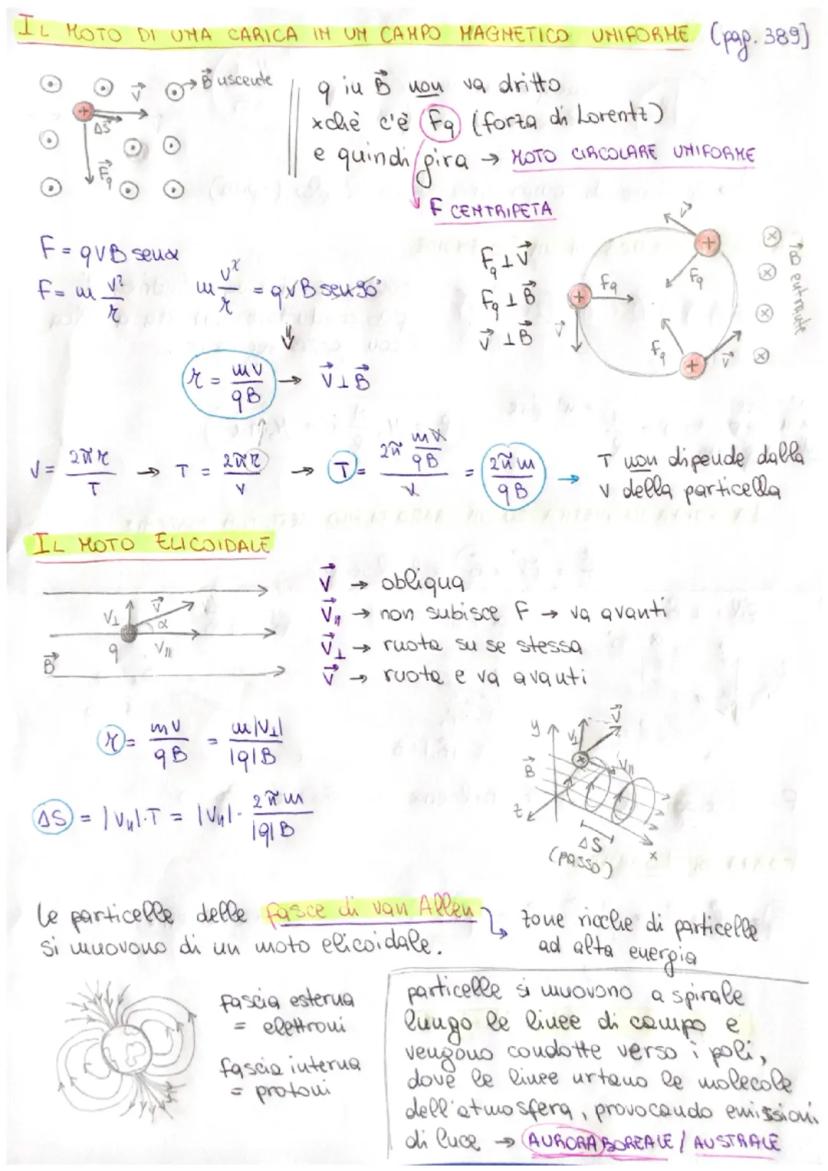 IL MOTO DI UNA CARICA IN UN CAMPO MAGNETICO UNIFORME (pag. 389)
B⃗ uscente
V⃗
+
ΔS⃗
F⃗q
q in B⃗ non va dritto
xchè c'è Fq (forza di Lorentz)
e quindi gira → MOTO CIRCOLARE UNIFORME
F CENTRIPETA
F = qVB senα
F = m v²/r
m v²/r = qvB sen90°
r = mv/qB → V⃗ ⊥ B⃗
Fq ⊥ V⃗
Fq ⊥ B⃗
V⃗ ⊥ B⃗
V⃗
+
Fq
+
Fq
V⃗
Fq
+
V⃗
B⃗ entrante
V = 2πr/T → T = 2πr/V → T = 2π mv/qB / v = 2πm/qB → T non dipende dalla
V della particella
IL MOTO ELICOIDALE
V⊥ V⃗ α
q V∥
B⃗
V⃗ → obliqua
V⃗∥ → non subisce F → va avanti
V⃗⊥ → ruota su se stessa
V⃗ → ruota e va avanti
r = mv/qB = m|V⊥|/|q|B
ΔS = |V∥|·T = |V∥| · 2πm/|q|B
y V⊥ V⃗
B⃗ V∥
z
ΔS x
(passo)
Le particelle delle fasce di van Allen → zone ricche di particelle
ad alta energia
si muovono di un moto elicoidale.
fascia esterna
= elettroni
fascia interna
= protoni
particelle si muovono a spirale
lungo le linee di campo e
vengono condotte verso i poli,
dove le linee urtano le molecole
dell'atmosfera, provocando emissioni
di luce → AURORA BOREALE / AUSTRALE